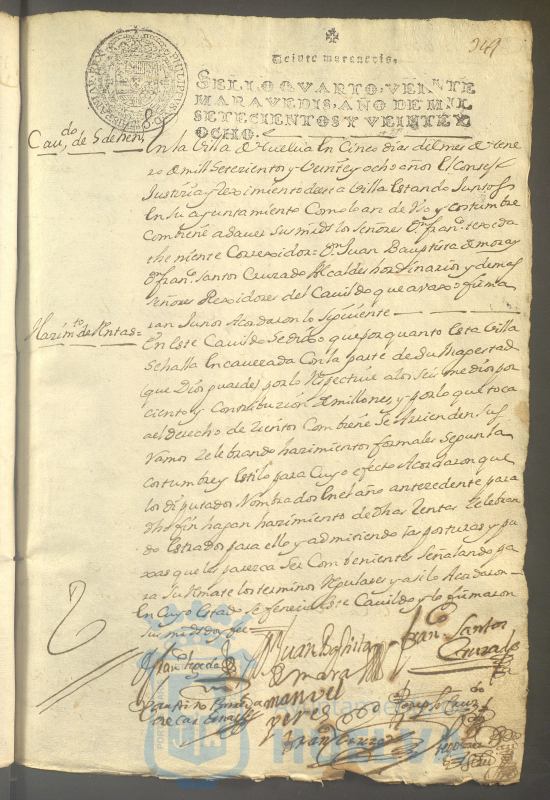 249
Veinte maravedis.
SELLO QVARTO, VEINTE
MARAVEDIS, AÑO DE MIL
SETECIENTOS Y VEINTE Y
OCHO.
Cavdo de 5 de hen
En la Villa de Huelva en Cinco dias del mes de he
nero de mill Setezientos y Veinte y ocho años El Consejo
Justizia y Reximiento desta Villa Estando Juntos
En su ayuntamiento Como lo an de Vso y costumbre
combiene a saver sus mrds los Señores Dn franco texeda
the niente Correxidor = Dn Juan Bauptista de mora y
Dn franco Santos Cruzado Alcaldes hordinarios y demas
Señores Rexidores del Cavildo que avaxo firma
ran Juntos Acordaron lo Siguiente
Hazimto de Rentas =
En Este Cavildo Se dixo que por quanto Esta Villa
Se halla Encavezada Con la parte de Su Magestad
(que Dios guarde) por lo Respective a los Seis medios por
ciento y Contribuzion de millones, y por lo que toca
al derecho de Zientos Combiene Se Arrienden Sus
Ramos Zelebrando hazimientos formales Segun la
costumbre y Estilo para Cuyo efecto Acordaron que
los diputados Nombrados En el año antecedente para
dho fin hagan hazimiento de dhas Rentas Zelebran
do Estrados para ello y admitiendo las posturas y pu
xas que les paresca Ser Combenientes Señalando pa
ra Su Remate los terminos Regulares y asi lo Acordaron
En Cuyo Estado Se feneció Este Cavildo y lo firmaron
Sus mrds doy fee
Juan Baptta
de mora
Franco Santos
Cruzado
manuel
peres
HUELVA